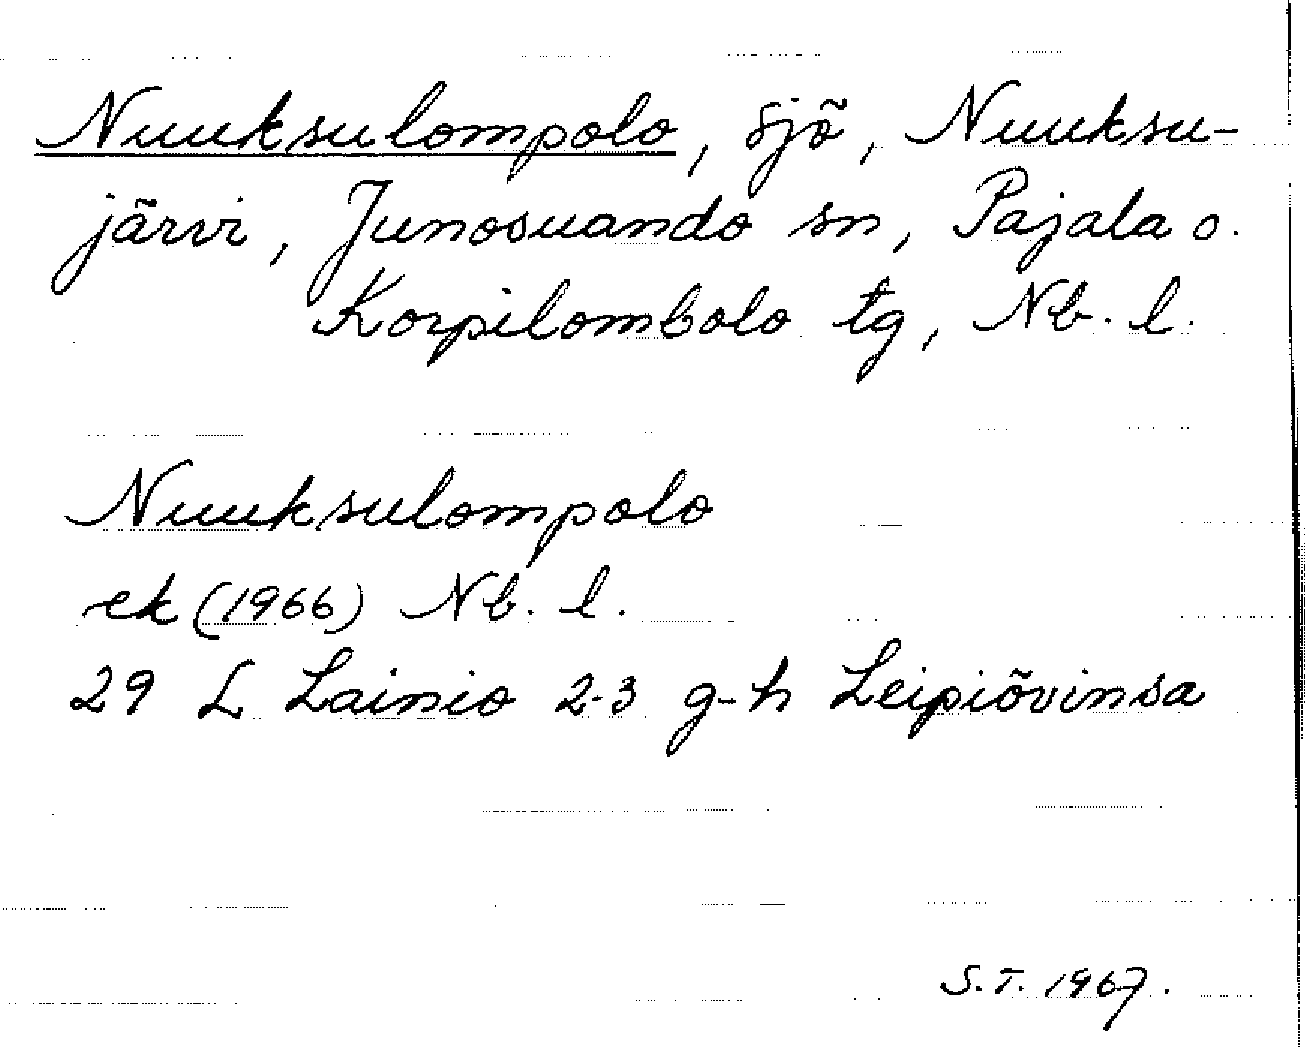 Nuuksulompolo, sjö, Nuuksu-
järvi, Junosuando sn, Pajala o.
Korpilombolo tg, Nb. l.
Nuuksulompolo
ek (1966) Nb. l.
29 L Lainio 2-3 g-h Leipiövinsa
S.T. 1967.